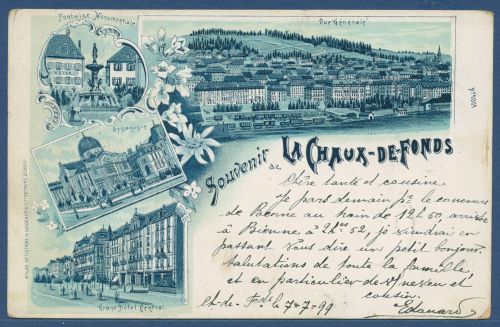 Fontaine Monumentale
Vue Générale
Synagogue
Souvenir de LA CHAUX-DE-FONDS.
Grand Hotel Central.
Chère tante et cousine
Je pars demain pr. le concours
de Berne au train de 12 h 50, arrive
à Bienne à 2 hrs 52, je viendrai en
passant vous dire un petit bonjour.
Salutations de toute la famille,
et en particulier de neveu et
cousin
Ch-de-Fds 7-7-99
Edouard